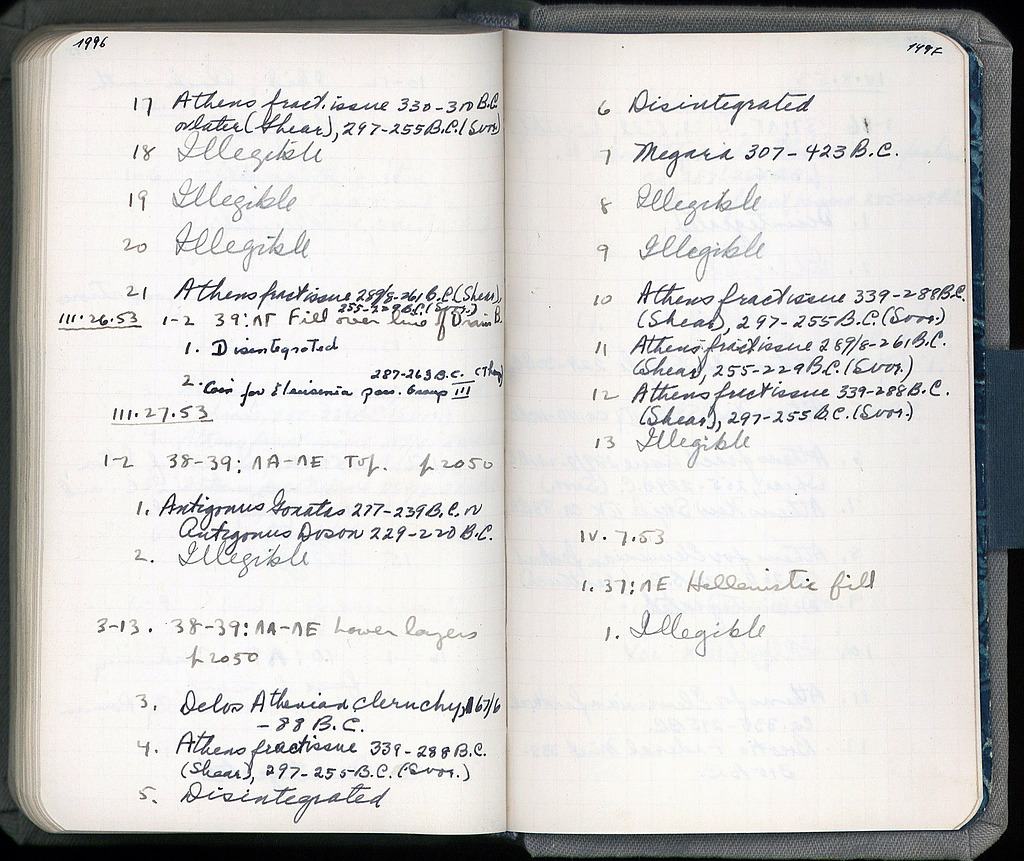 1996
17 Athens fract. issue 330-310 B.C.
or later (Shear), 297-255 B.C. (Svor.)
18 Illegible
19 Illegible
20 Illegible
21 Athens fract issue 289/8-261 B.C. (Shear),
255-229 B.C. (Svor.)
III.26.53 1-2 39:ΛΓ Fill over line of Drain B.
1. Disintegrated
287-263 B.C. (Thomp
2. Coin for Eleusinia poss. Group III
III.27.53
1-2 38-39: ΛΑ-ΛΕ Top. p 2050
1. Antigonus Gonatas 277-239 B.C. or
Antigonus Doson 229-220 B.C.
2. Illegible
3-13. 38-39: ΛΑ-ΛΕ Lower layers
p 2050
3. Delos Athenian cleruchy, 167/6
-88 B.C.
4. Athens fract issue 339-288 B.C.
(Shear), 297-255 B.C. (Svor.)
5. Disintegrated
6 Disintegrated
7 Megara 307-423 B.C.
8 Illegible
9 Illegible
10 Athens fract issue 339-288 B.C.
(Shear), 297-255 B.C. (Svor.)
11 Athens fract issue 289/8-261 B.C.
(Shear), 255-229 B.C. (Svor.)
12 Athens fract issue 339-288 B.C.
(Shear), 297-255 B.C. (Svor.)
13 Illegible
IV. 7.53
1. 37: ΛΕ Hellenistic fill
1. Illegible